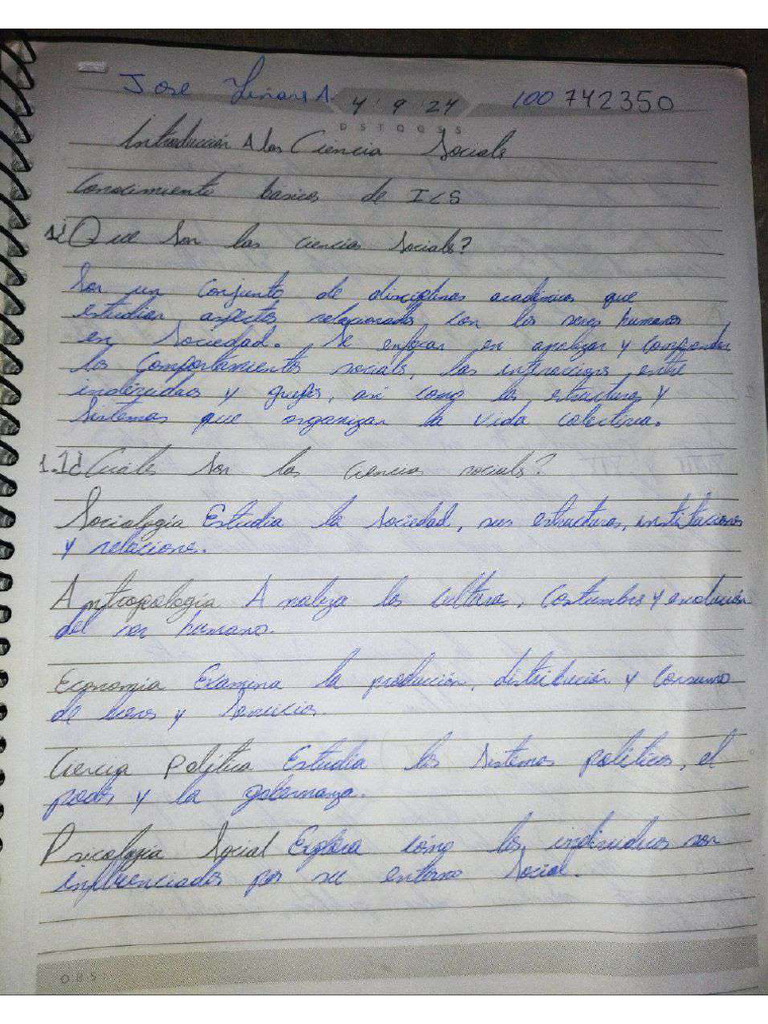 Jose Liñares A 4 9 24 100 742350
Introducción A las Ciencia Sociale
Conocimiento basicos de ICS
1¿Que Son las ciencias Sociales?
Son un conjunto de disciplinas académicas que
estudian aspectos relacionados con los seres humanos
en Sociedad. Se enfocan en analizar y comprender
los Comportamientos sociales, las interacciones entre
individuos y grupos, asi como las estructuras y
Sistemas que organizan la vida colectiva.
1.1¿Cuales Son las ciencias sociales?
Sociología Estudia la Sociedad, sus estructuras, instituciones
y relacione.
Antropología Analiza las culturas, Costumbres y evolución
del ser humano.
Economia Examina la producción, distribución y Consumo
de bienes y Servicios.
Ciencia Politica Estudia los Sistemas políticos, el
poder y la gobernanza.
Psicologia Social Explora cómo los individuos son
influenciados por su entorno Social.